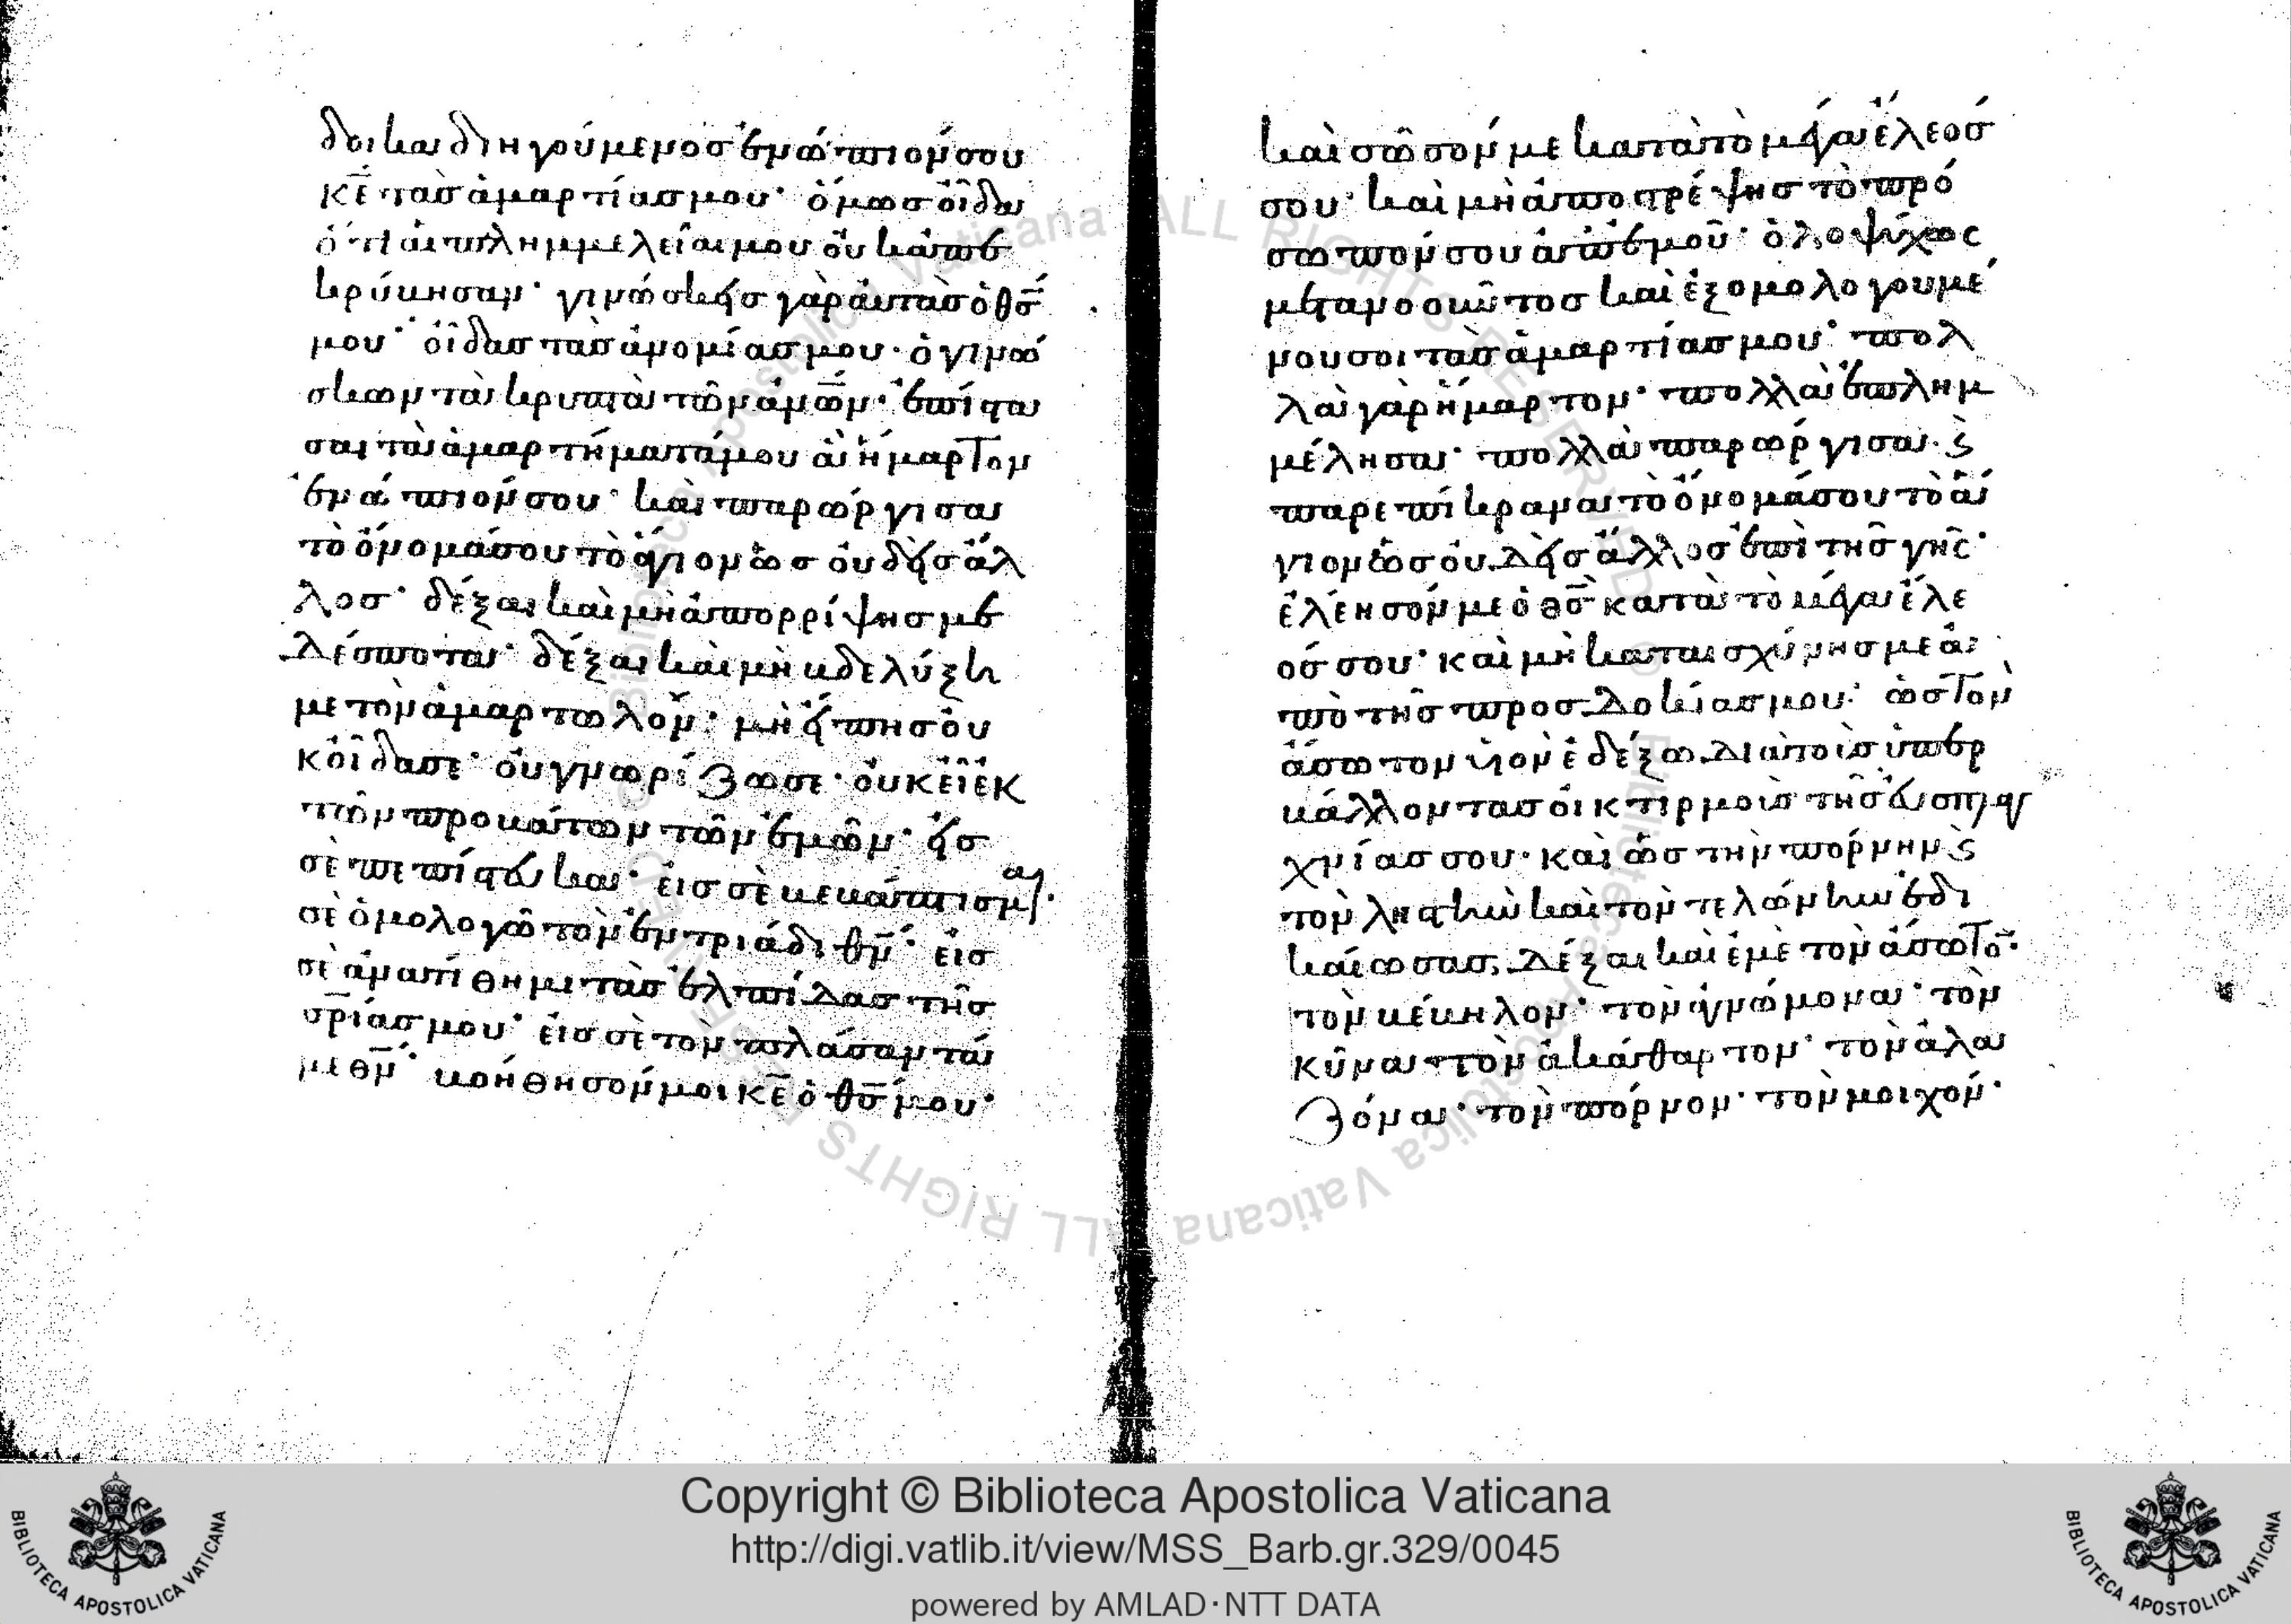 δοι και διηγούμενος ἐνώπιόν σου
κ̅ε̅ τὰς ἁμαρτίας μου· ὅμως οἶδα
ὅτι αἱ πλημμελεῖαι μου οὐκ ἀπε
κρύβησαν· γινώσκεις γὰρ αὐτὰς ὁ θ̅ς̅
μου· οἶδας τὰς ἀνομίας μου· ὁ γινώ
σκων τὰ κρυπτὰ τῶν ἀν̅ω̅ν̅· ἐπίστα
σαι τὰ ἁμαρτήματά μου ἃ ἥμαρτον
ἐνώπιόν σου· καὶ παρώργισα
τὸ ὄνομά σου τὸ ἅγιον ὡς οὐδεὶς ἄλ
λος· δέξαι καὶ μὴ ἀπορρίψης με
δέσποτα· δέξαι καὶ μὴ βδελύξη
με τὸν ἁμαρτωλόν· μὴ εἴπης οὐ
κ οἶδά σε· οὐ γνωρίζω σε· οὐκ εἶ ἐκ
τῶν προβάτων τῶν ἐμῶν· εἰς
σὲ πεπίστευκα· εἰς σὲ βεβάπτισμαι·
σὲ ὁμολογῶ τὸν ἐν τριάδι θ̅ν̅· εἰς
σὲ ἀνατίθημι τὰς ἐλπίδας τῆς
σ̅ρ̅ίας μου· εἰς σὲ τὸν πλάσαντά
με θ̅ν̅· βοήθησόν μοι κ̅ε̅ ὁ θ̅ς̅ μου·
καὶ σῶσόν με κατὰ τὸ μέγα ἔλεός
σου· καὶ μὴ ἀποστρέψης τὸ πρό
σωπόν σου ἀπ' ἐμοῦ· ὁλοψύχως
μετανοοῦντος καὶ ἐξομολογουμέ
νου σοι τὰς ἁμαρτίας μου· πολ
λὰ γὰρ ἥμαρτον· πολλὰ ἐπλημ
μέλησα· πολλὰ παρώργισα· ϗ
παρεπίκρανα τὸ ὄνομά σου τὸ ἅ
γιον ὡς οὐδεὶς ἄλλος ἐπὶ τῆς γῆς·
ἐλέησόν με ὁ θ̅ς̅ κατὰ τὸ μέγα ἔλε
ός σου· καὶ μὴ καταισχύνης με ἀ
πὸ τῆς προσδοκίας μου· ὡς τὸν
ἄσωτον υἱὸν ἐδέξω διὰ τοὺς ὑπερ
βάλλοντας οἰκτιρμοὺς τῆς εὐσπλαγ
χνίας σου· καὶ ὡς τὴν πόρνην ϗ
τὸν ληστὴν καὶ τὸν τελώνην ἐδι
καίωσας, δέξαι καὶ ἐμὲ τὸν ἄσωτον·
τὸν βέβηλον· τὸν ἀγνώμονα· τὸν
κῦνα· τὸν ἀκάθαρτον· τὸν ἀλα
ζόνα· τὸν πόρνον· τὸν μοιχόν·
Copyright © Biblioteca Apostolica Vaticana
http://digi.vatlib.it/view/MSS_Barb.gr.329/0045
powered by AMLAD·NTT DATA